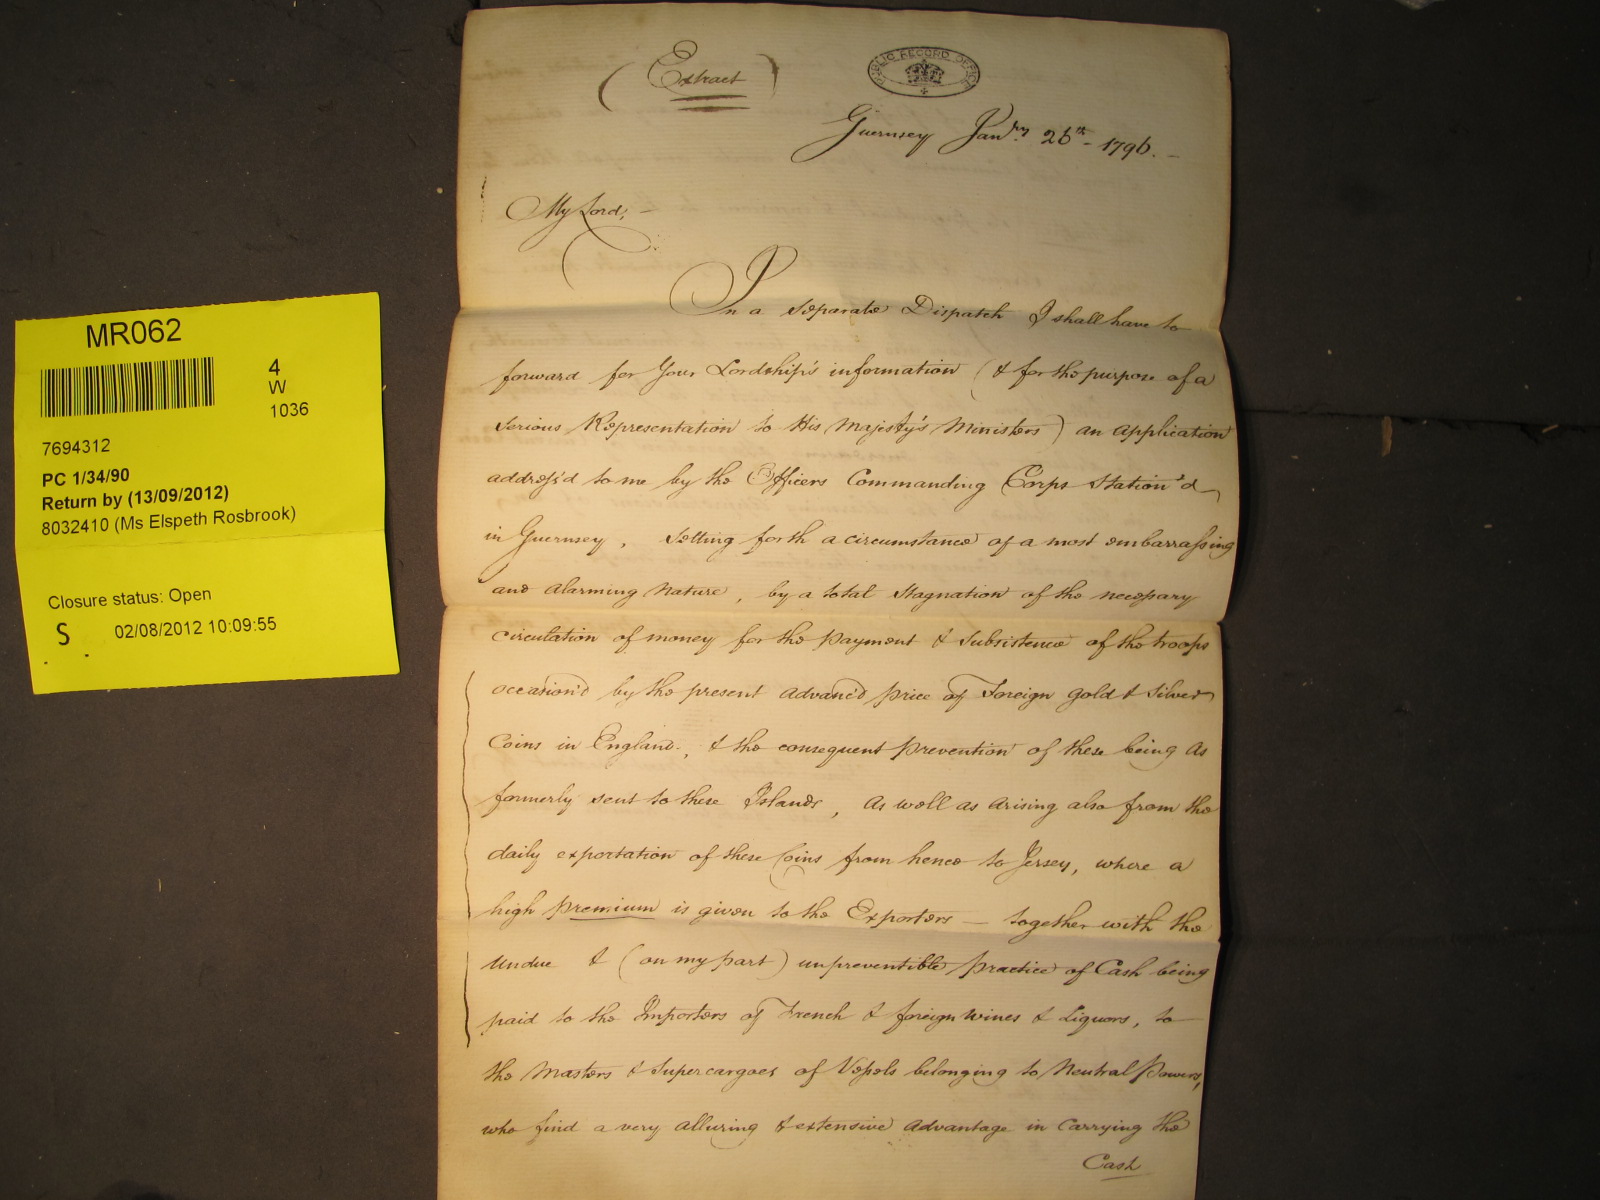 MR062
4
W
1036
7694312
PC 1/34/90
Return by (13/09/2012)
8032410 (Ms Elspeth Rosbrook)
Closure status: Open
S 02/08/2012 10:09:55
(Extract)
PUBLIC RECORD OFFICE
Guernsey Janry 26th - 1796. -
My Lord; -
In a separate Dispatch I shall have to
forward for Your Lordship's information (& for the purpose of a
serious Representation to His Majesty's Ministers) an application
address'd to me by the Officers Commanding Corps Station'd
in Guernsey, setting forth a circumstance of a most embarrassing
and alarming Nature, by a total Stagnation of the necessary
circulation of money for the payment & subsistence of the troops
occasion'd by the present advanc'd price of Foreign gold & silver
Coins in England, & the consequent prevention of these being as
formerly sent to these Islands, as well as arising also from the
daily exportation of these Coins from hence to Jersey, where a
high premium is given to the Exporters — together with the
undue & (on my part) unpreventible practice of Cash being
paid to the Importers of French & foreign wines & Liquors, to
the Masters & Supercargoes of Vessels belonging to Neutral Powers,
who find a very alluring & extensive advantage in carrying the
Cash